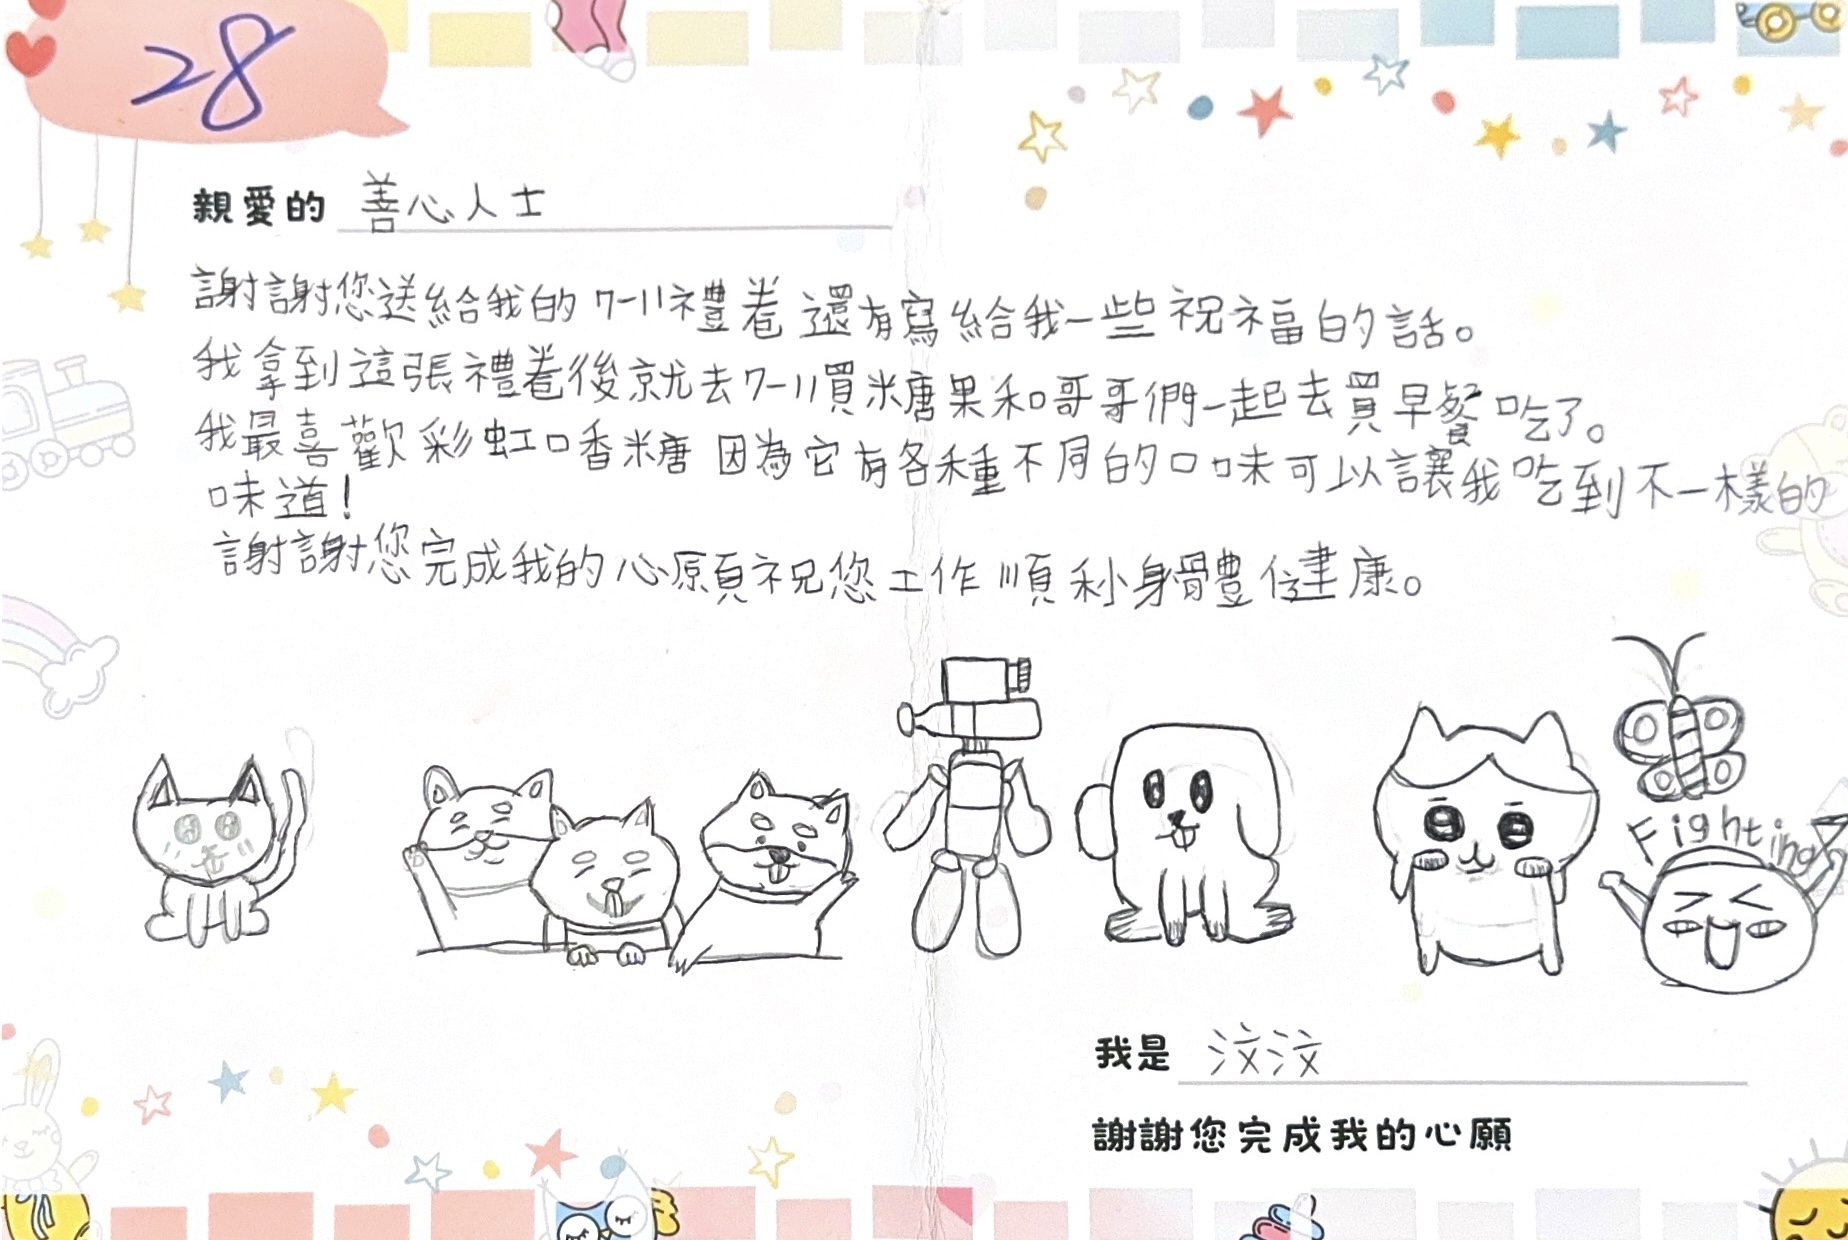 28
親愛的 善心人士
謝謝您送給我的7-11禮卷還有寫給我一些祝福的話。
我拿到這張禮卷後就去7-11買糖果和哥哥們一起去買早餐吃了。
我最喜歡彩虹口香糖因為它有各種不同的口味可以讓我吃到不一樣的
味道!
謝謝您完成我的心願祝您工作順利身體健康。
Fighting
我是 汶汶
謝謝您完成我的心願